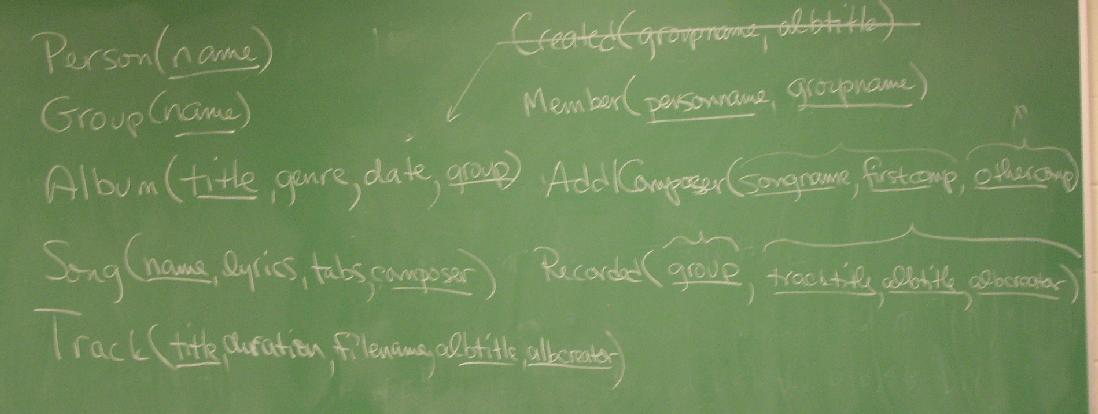 Person(name)
Created(groupname, albtitle)
Group(name)
Member(personname, groupname)
Album(title, genre, date, group)
AddlComposer(songname, firstcomp, othercomp)
Song(name, lyrics, tabs, composer)
Recorded(group, tracktitle, albtitle, albcreator)
Track(title, duration, filename, albtitle, albcreator)